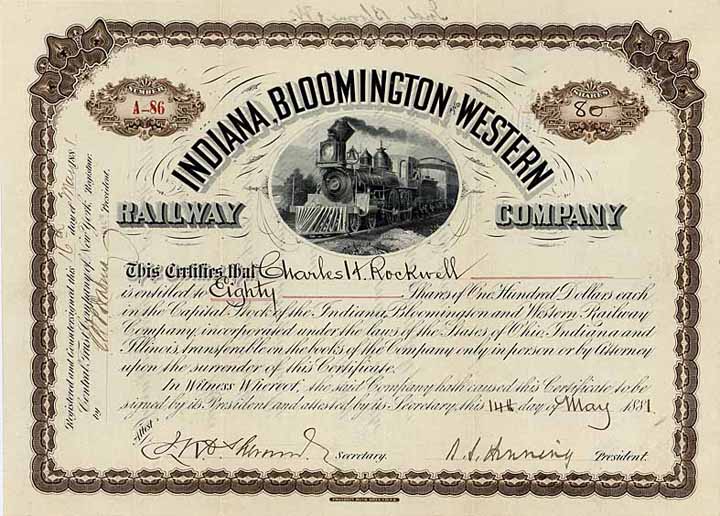 NUMBER
A-86
SHARES
80
INDIANA, BLOOMINGTON AND WESTERN
RAILWAY COMPANY
This Certifies that Charles H. Rockwell
is entitled to Eighty Shares of One Hundred Dollars each
in the Capital Stock of the Indiana, Bloomington and Western Railway
Company, incorporated under the laws of the States of Ohio, Indiana and
Illinois, transferable on the books of the Company only in person or by Attorney
upon the surrender of this Certificate.
In Witness Whereof, the said Company hath caused this Certificate to be
signed by its President and attested by its Secretary, this 14th day of May 1881.
Attest
Secretary.
President.
Registered and Countersigned this 16th day of May 1881
Central Trust Company of New York, Registrar.
by President.